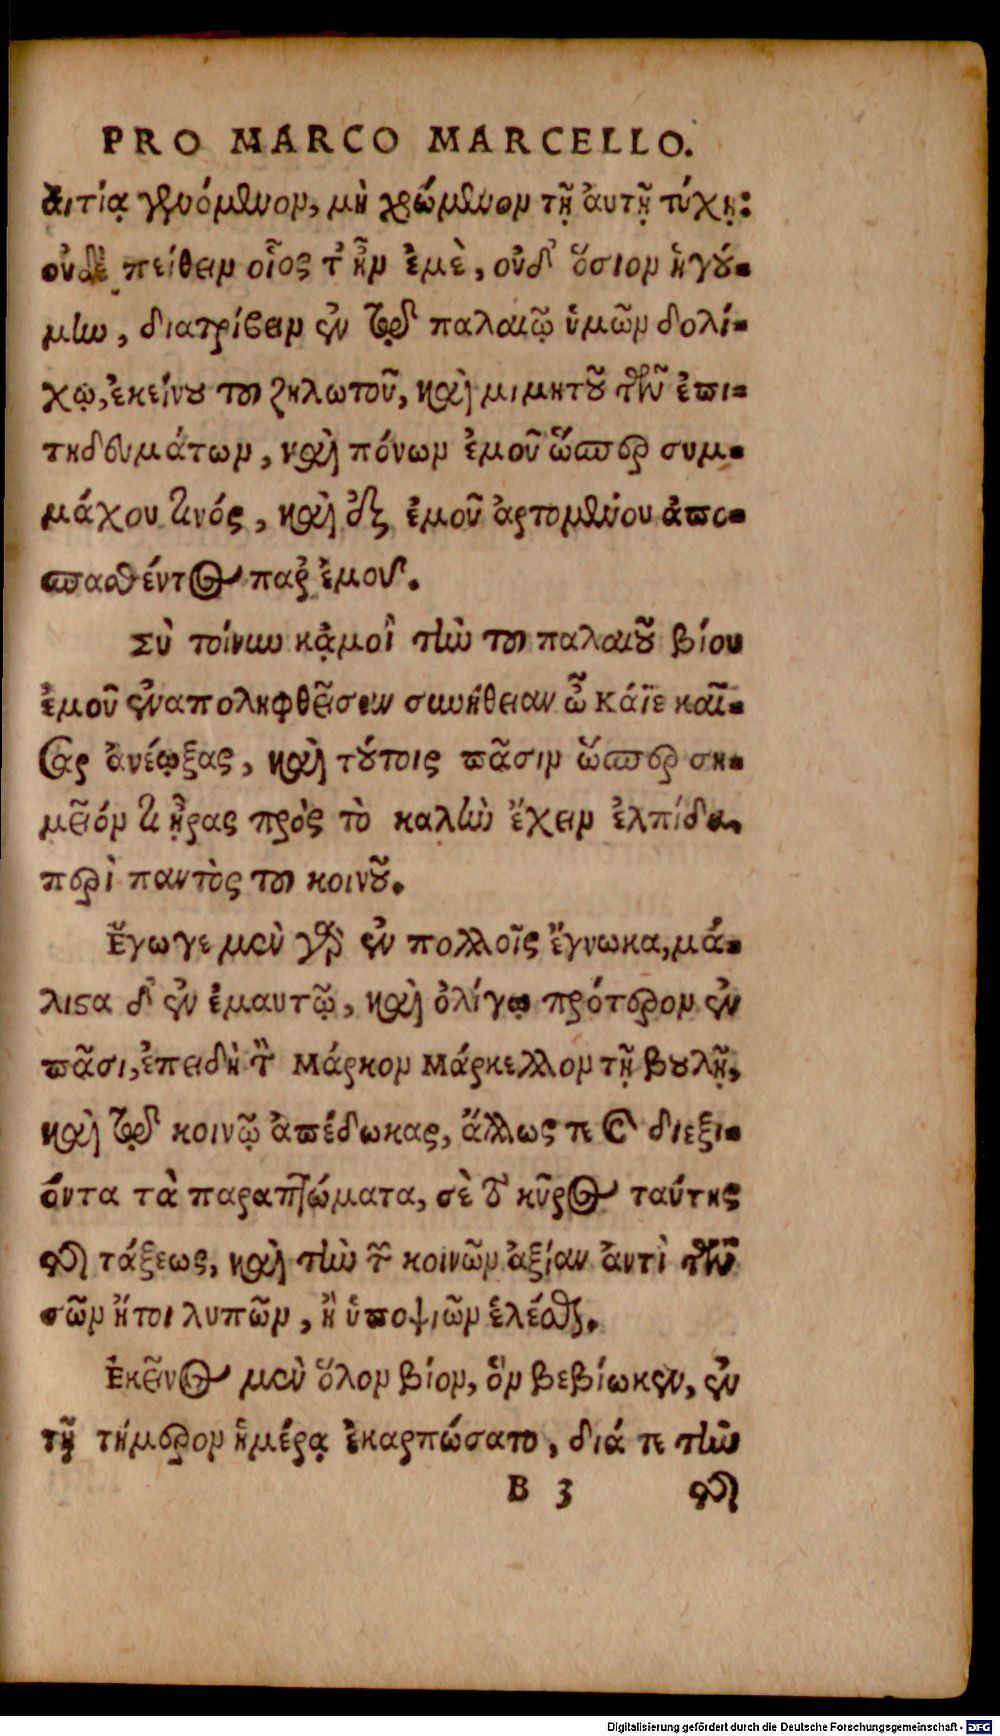 PRO MARCO MARCELLO.
αιτίᾳ γενόμενον, μὴ χρώμενον τῇ ἀυτῇ τύχῃ:
οὐδὲ πείθειν οἷος τ' ἦν ἐμὲ, οὐδ' ὅσιον ἡγού-
μην, διατρίβειν ἐν τῷδε παλαιῷ ὑμῶν δολί-
χῳ, ἐκείνου του ζηλωτοῦ, καὶ μιμητοῦ τῶν ἐπι-
τηδευμάτων, καὶ πόνων ἐμοῦ ὥσπερ συμ-
μάχου τινός, καὶ ἐξ ἐμοῦ ἀρτομένου ἀπο-
σπασθέντος παρ' ἐμου.
Σὺ τοίνυν κᾀμοὶ τὴν του παλαιοῦ βίου
ἐμοῦ ἐναποληφθεῖσαν συνήθειαν ὦ Κάϊε καῖ-
σαρ ἀνέῳξας, καὶ τούτοις πᾶσιν ὥσπερ ση-
μεῖόν τι ᾖρας πρὸς τὸ καλὴν ἔχειν ἐλπίδα,
περὶ παντὸς του κοινοῦ.
Ἔγωγε μεν γὰρ ἐν πολλοῖς ἔγνωκα, μά-
λιστα δ' ἐν ἐμαυτῷ, καὶ ὀλίγῳ πρότερον ἐν
πᾶσι, ἐπειδὴ τὸν Μάρκον Μάρκελλον τῇ βουλῇ,
καὶ τῷδε κοινῷ ἀπέδωκας, ἄλλως τε καὶ διεξι-
όντα τὰ παραπτώματα, σὲ τὸ κῦρος ταύτης
τῆς τάξεως, καὶ τὴν τῶν κοινῶν ἀξίαν ἀντὶ τῶν
σῶν ἤτοι λυπῶν, ἢ ὑποψιῶν ἑλέσθαι.
Ἐκεῖνος μεν ὅλον βίον, ὃν βεβίωκεν, ἐν
τῇ τήμερον ἡμέρᾳ ἐκαρπώσατο, διά τε τὴν
B 3 τῆς
Digitalisierung gefördert durch die Deutsche Forschungsgemeinschaft - DFG